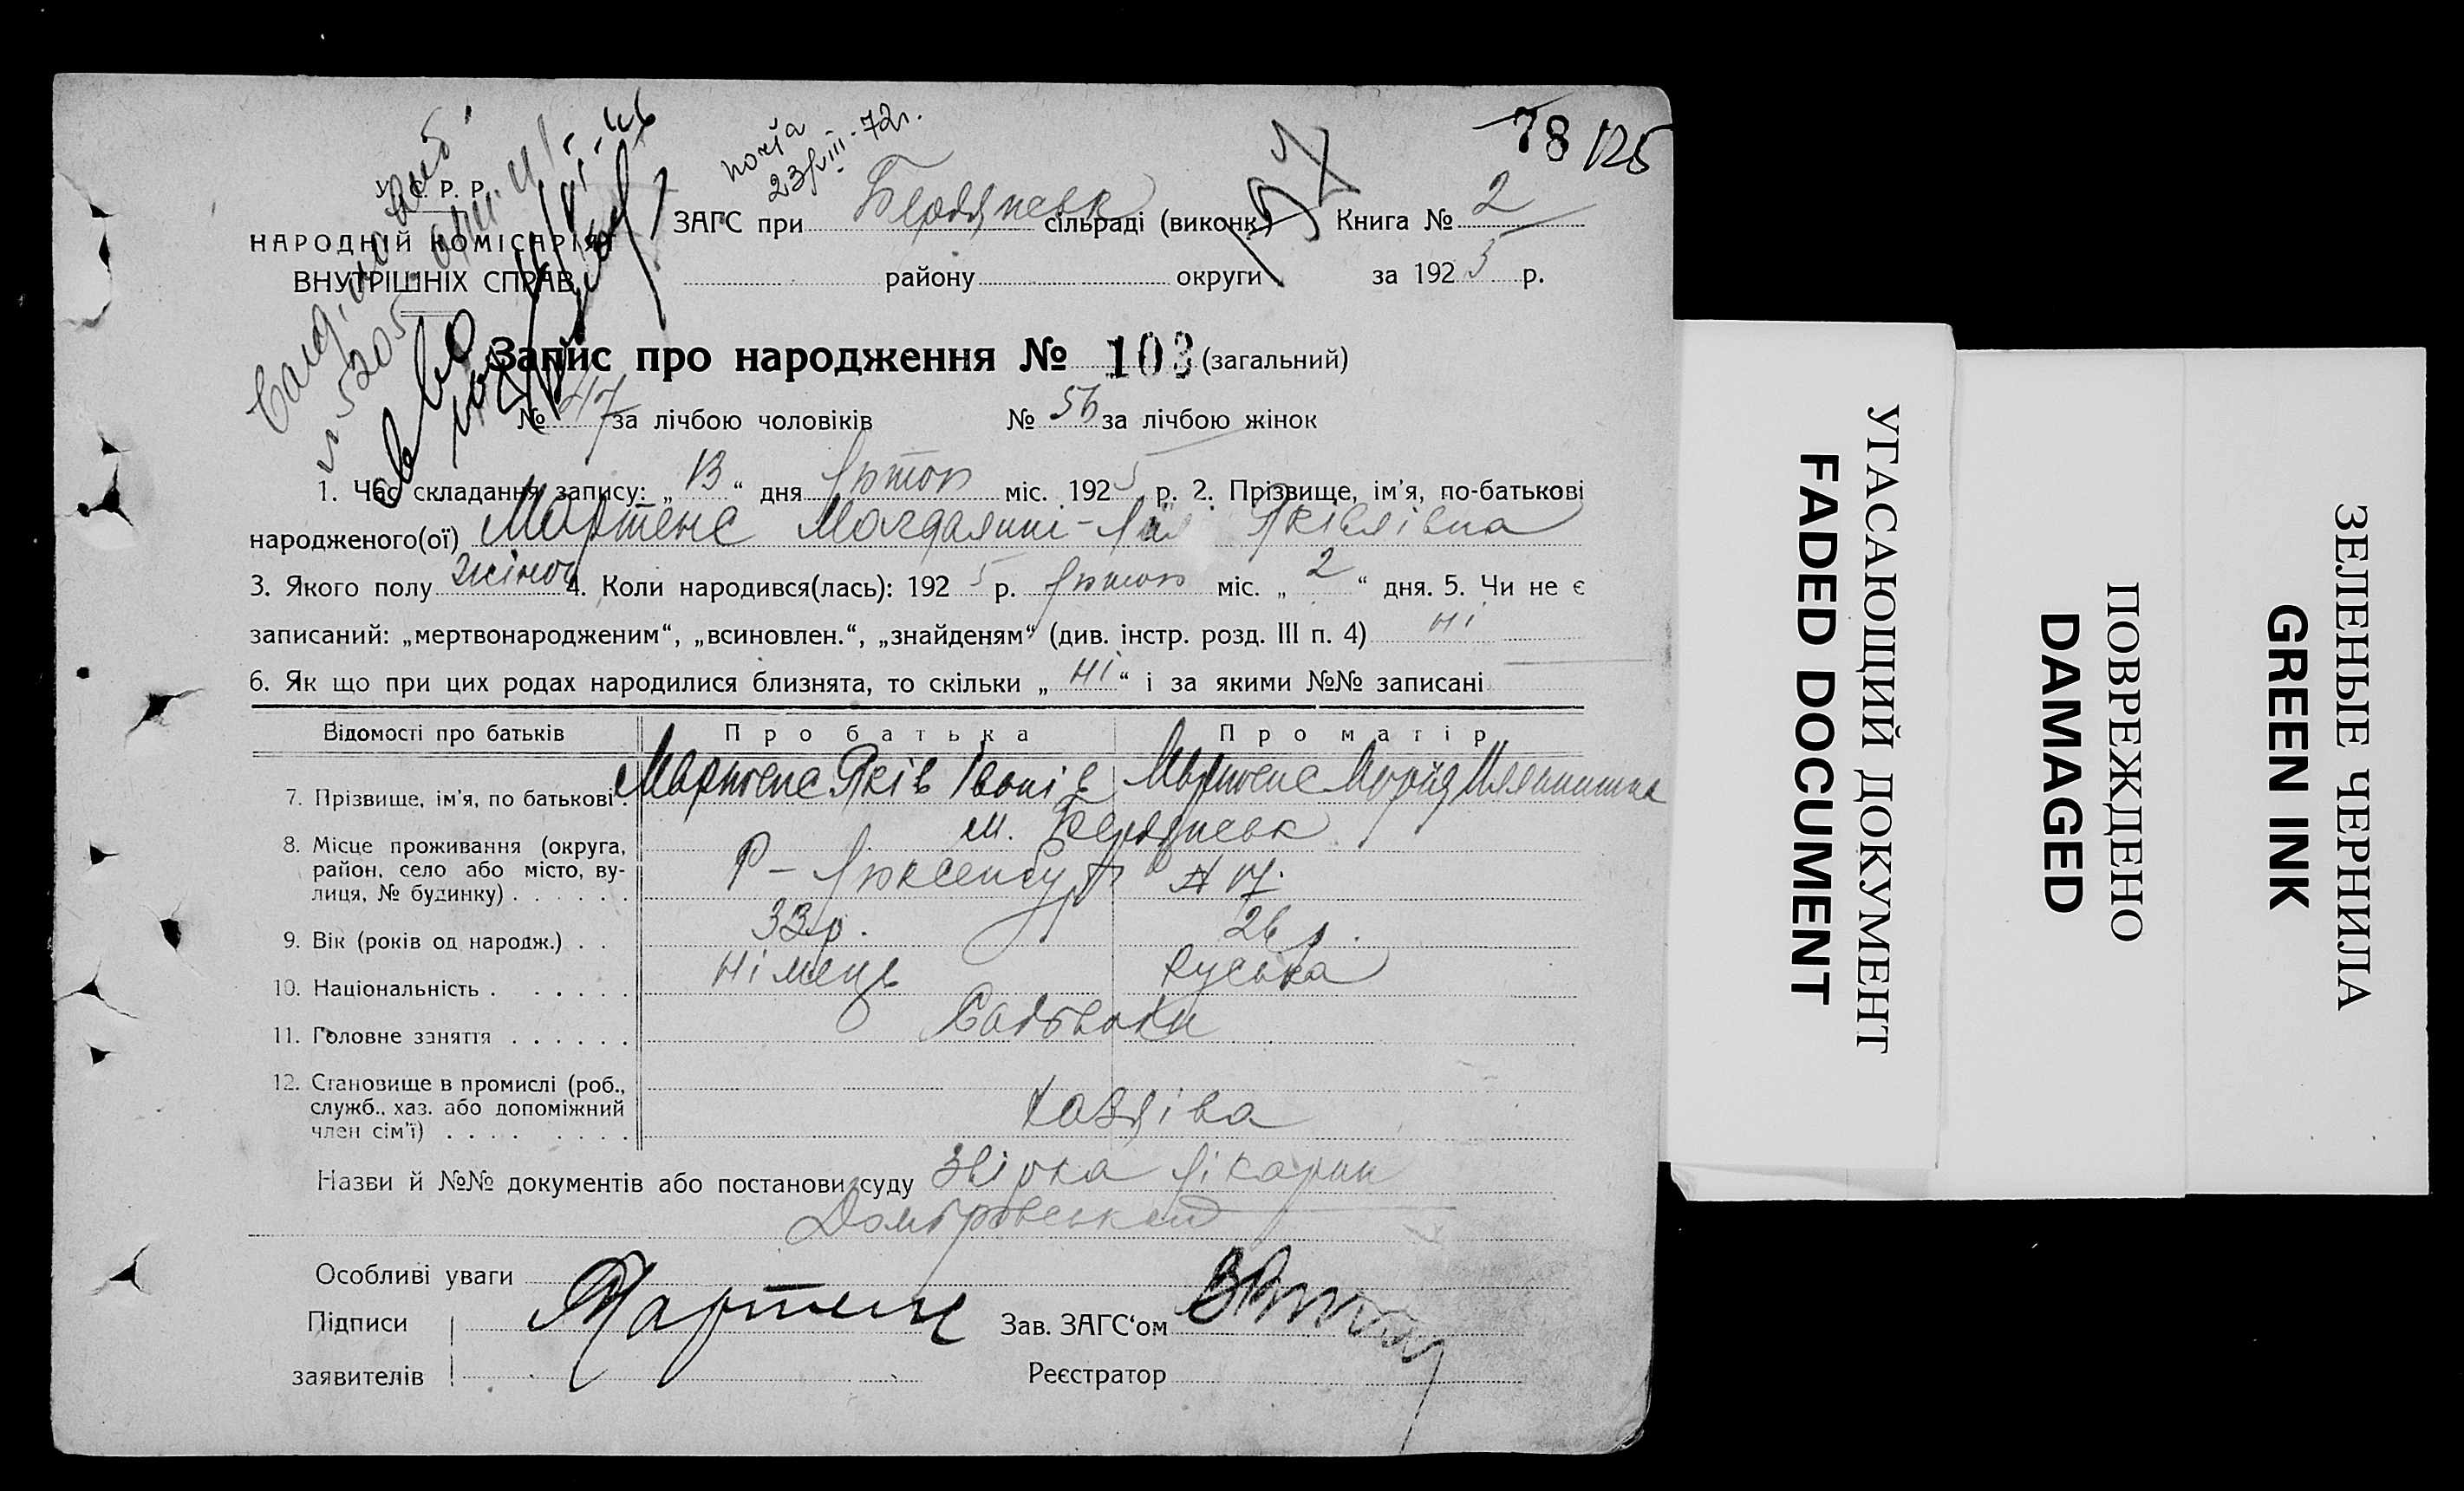 78 125
пошта
23/VIII-72г.
У. С. Р. Р.
НАРОДНІЙ КОМІСАРІЯТ
ВНУТРІШНІХ СПРАВ
ЗАГС при Бердянськ сільраді (виконк.) Книга № 2
району округи за 1925 р.
Запис про народження № 103 (загальний)
№ 47 за лічбою чоловіків № 56 за лічбою жінок
1. Час складання запису: „13“ дня Лютог міс. 1925 р. 2. Прізвище, ім'я, по-батькові
народженого(ої) Мартенс Яківлівна
3. Якого полу жіноч 4. Коли народився(лась): 1925 р. Лютог міс. „2“ дня. 5. Чи не є
записаний: „мертвонародженим“, „всиновлен.“, „знайденям“ (див. інстр. розд. III п. 4) ні
6. Як що при цих родах народилися близнята, то скільки „ні“ і за якими №№ записані
Відомості про батьків Про батька Про матір
7. Прізвище, ім'я, по батькові. Мартенс Яків Іванів Мартенс Марія
8. Місце проживання (округа, район, село або місто, вулиця, № будинку) . . . . . . м. Бердянськ
Р-Люксенбург № 17.
9. Вік (років од народж.) . . 33 р. 26 р.
10. Національність . . . . . . Німець Руська
11. Головне заняття . . . . . .
12. Становище в промислі (роб., служб., хаз. або допоміжний член сім'ї) . . . . . . . . Хазяїва
Назви й №№ документів або постанови суду Звірка лікарки
Домбровської
Особливі уваги
Підписи Мартенс Зав. ЗАГС‘ом
заявителів Реєстратор
УГАСАЮЩИЙ ДОКУМЕНТ
FADED DOCUMENT
ПОВРЕЖДЕНО
DAMAGED
ЗЕЛЕНЫЕ ЧЕРНИЛА
GREEN INK